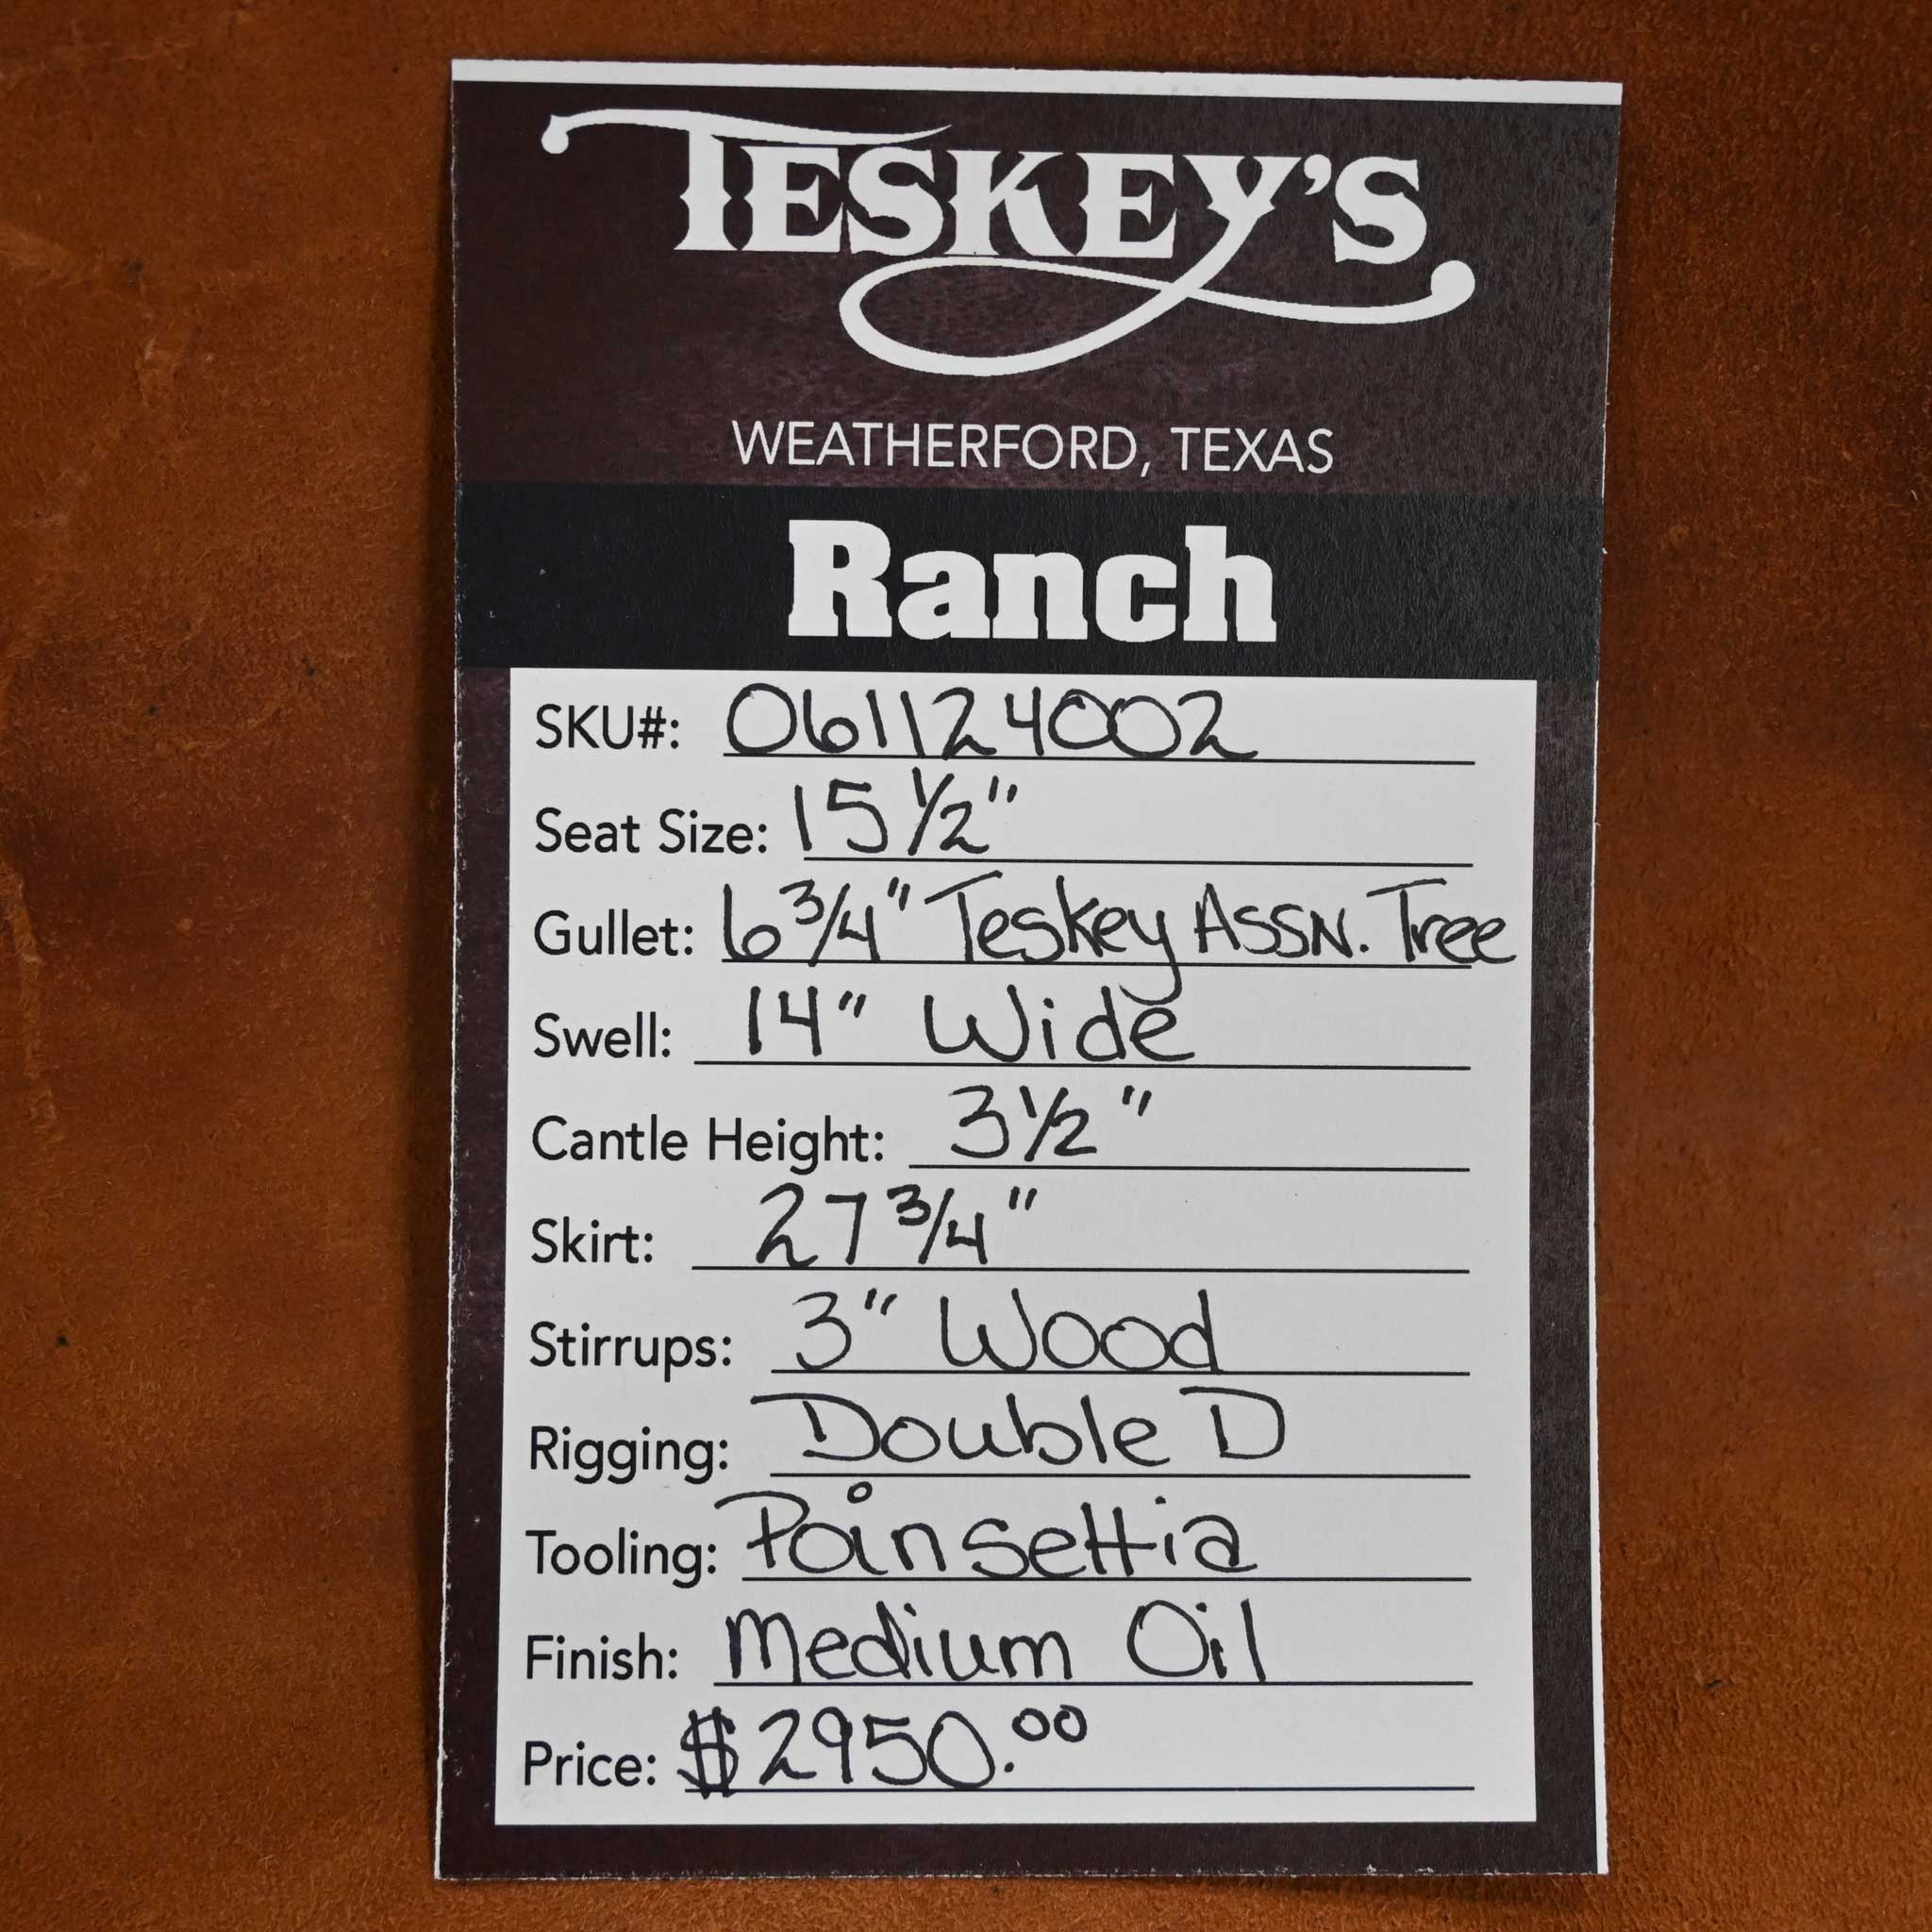 TESKEY'S
WEATHERFORD, TEXAS
Ranch
SKU#: 061124002
Seat Size: 15 1/2"
Gullet: 6 3/4" Teskey ASSN. Tree
Swell: 14" Wide
Cantle Height: 3 1/2"
Skirt: 27 3/4"
Stirrups: 3" Wood
Rigging: Double D
Tooling: Poinsettia
Finish: Medium Oil
Price: $2950.00